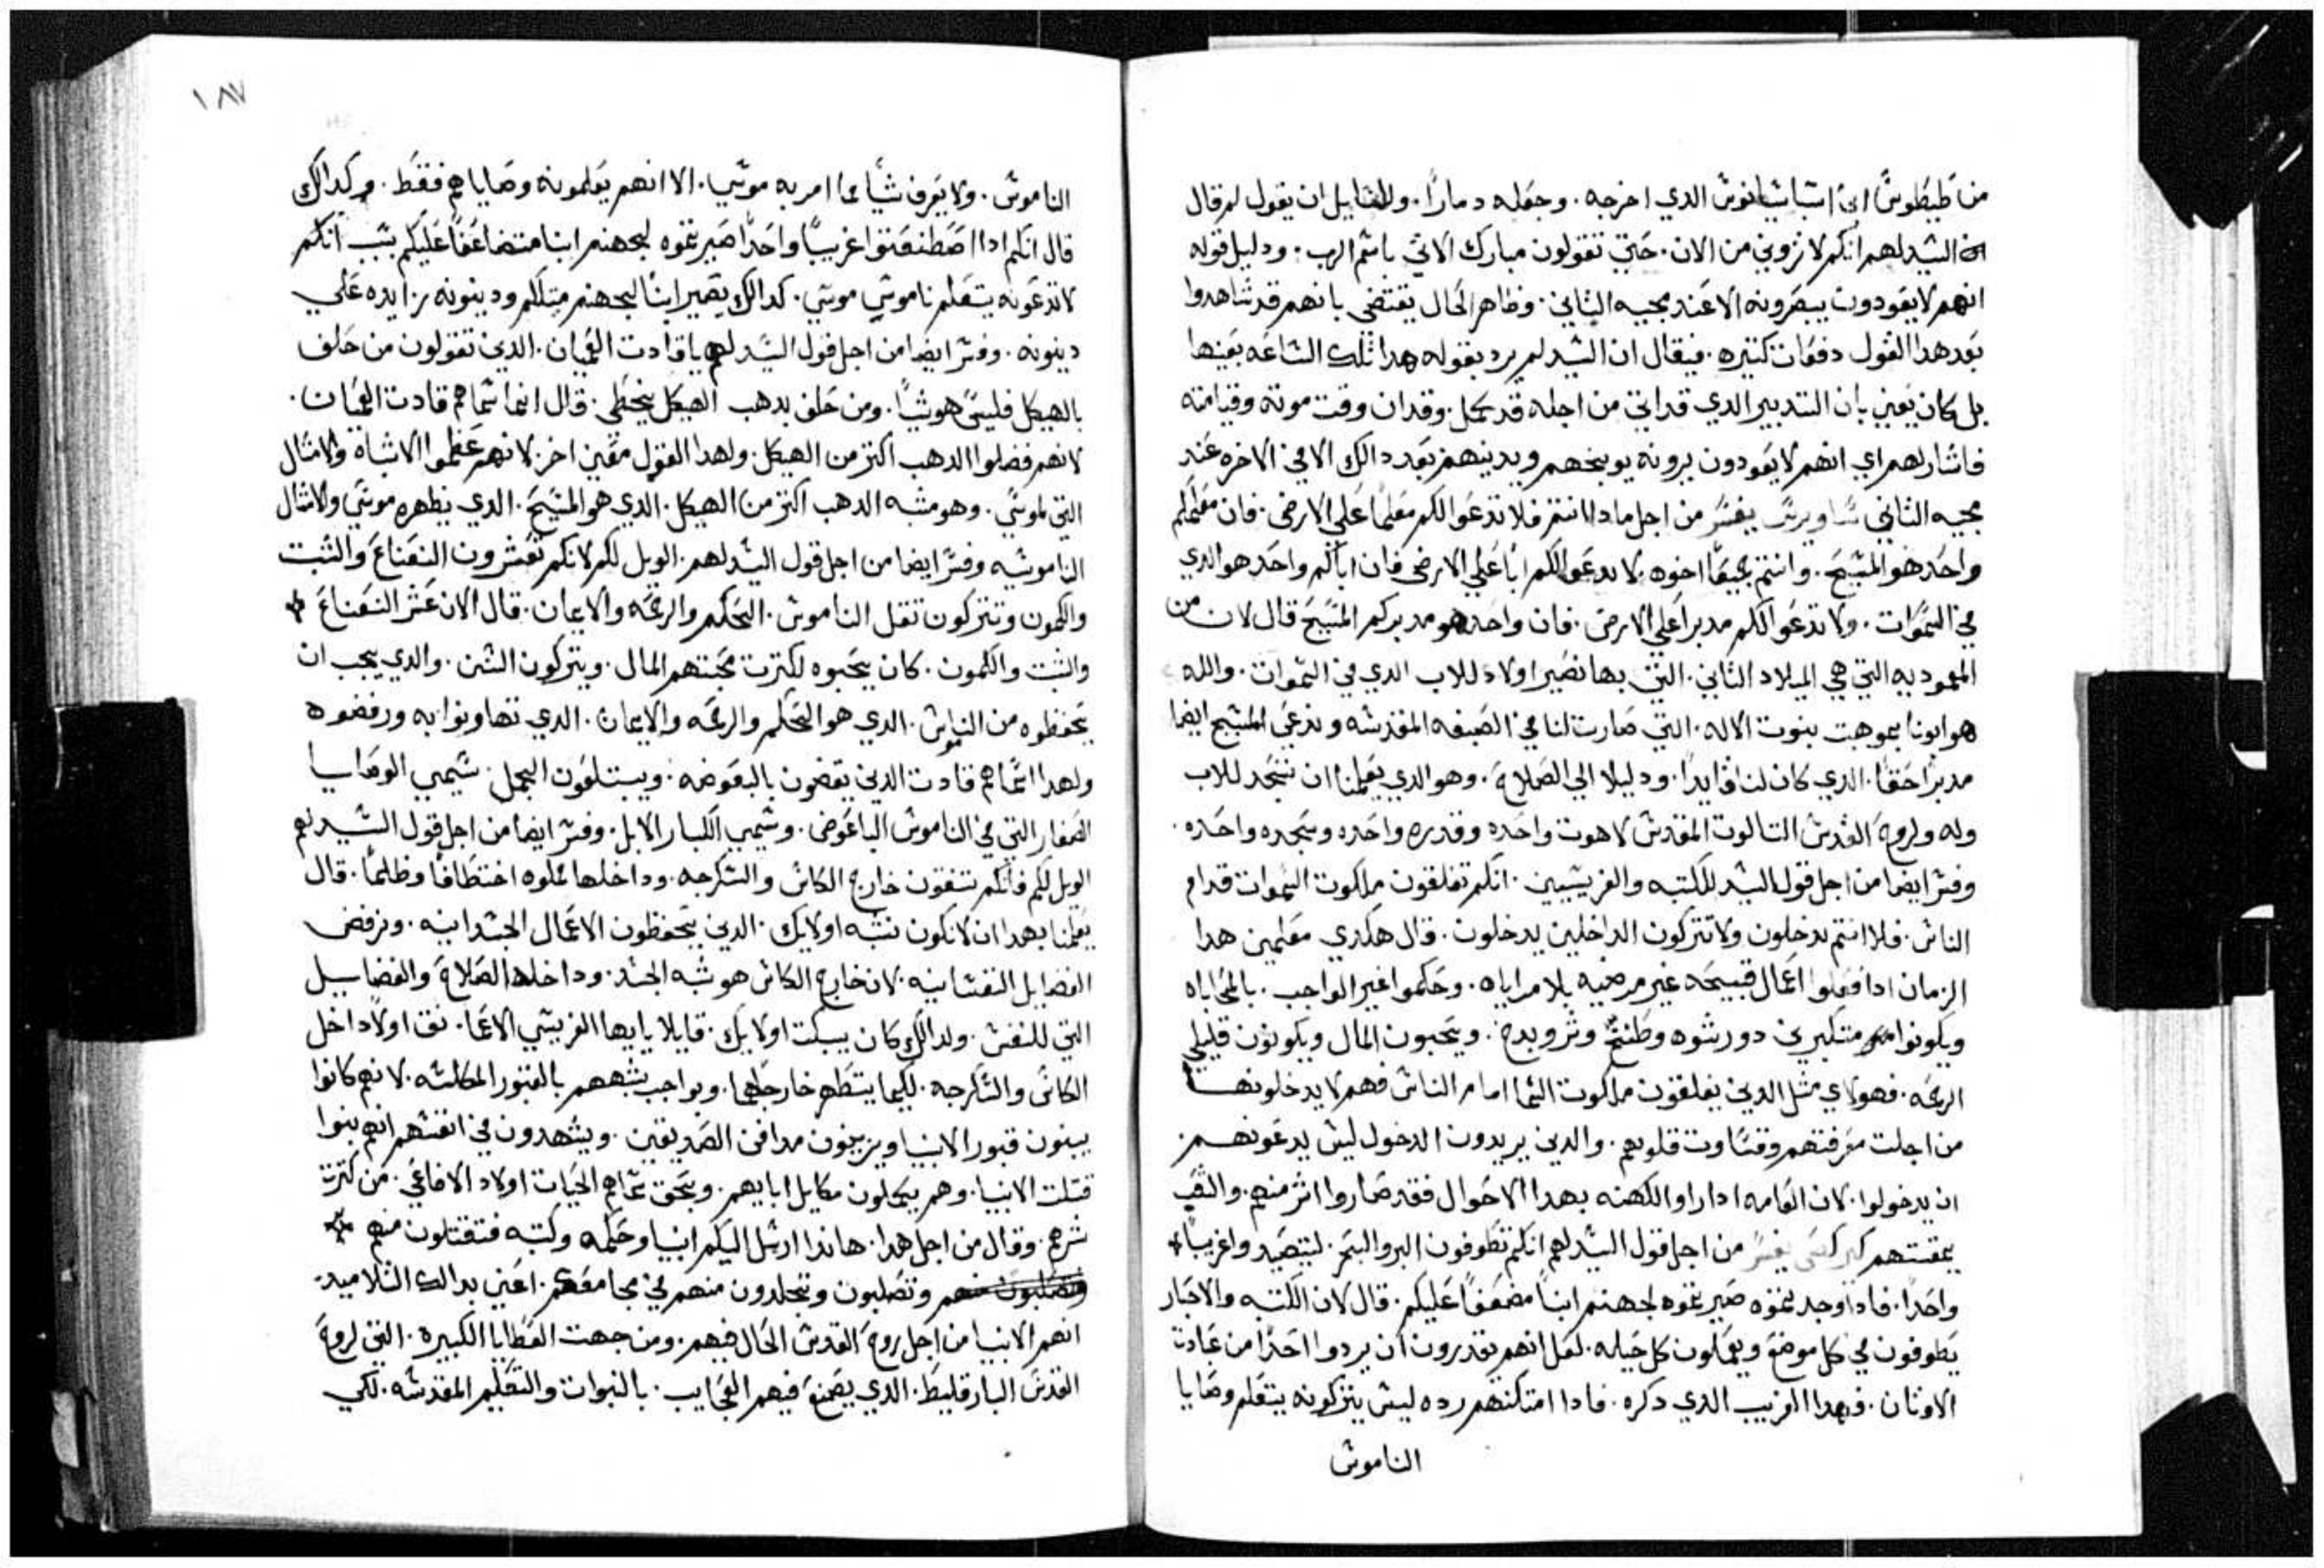 من طيطوس ابن اشباشيانوس الدي اخرجه. وجعله دمارًا. وللقايل ان يقول لم قال
السيد لهم انكم لا تروني من الان. حتي تقولون مبارك الاتي باسم الرب. ودليل قوله
انهم لا يعودون يبصرونه الا عند مجيه الثاني. وظاهر الحال يقتضي بانهم قد شاهدوا
بعد هدا القول دفعات كتيره. فيقال ان السيد لم يرد بقوله هدا تلك الساعه بعينها
بل كان يعني بان التدبير الدي قد اتي من اجله قد كمل. وقد ان وقت موته وقيامته
فاشار لهم اي انهم لا يعودون يرونه يوبخهم ويدينهم بعد دالك الا في الاخره عند
مجيه الثاني ساويرس يفسر من اجل مادا انتم فلا تدعوا لكم معلمًا علي الارض. فان معلمكم
واحد هو المسيح. وانتم جميعًا اخوه. لا تدعوا لكم ابًا علي الارض فان اباكم واحد هو الدي
في السموات. ولا تدعوا لكم مدبرا علي الارض. فان واحد هو مدبركم المسيح قال لان من
المعموديه التي هي الميلاد الثاني. التي بها نصير اولاد للاب الدي في السموات. والله
هو ابونا بموهبت بنوت الاله. التي صارت لنا في الصبغه المقدسه وندعي المسيح ايضا
مدبرًا حقًا. الدي كان لنا قايدًا. ودليلا الي الصلاح. وهو الدي يعلمنا ان نسجد للاب
وله ولروح القدس التالوت المقدس لاهوت واحده وقدره واحده وسجده واحده.
وفسر ايضا من اجل قول السيد للكتبه والفريسيين. انكم تغلقون ملكوت السموات قدام
الناس. فلا انتم تدخلون ولا تتركون الداخلين يدخلون. قال هكدي معلمين هدا
الزمان ادا فعلوا اعمال قبيحه غير مرضيه بلا مراياه. وحكموا غير الواجب. بالمحاباه
ويكونوا متكبرين دو رشوه وطنخ وترويدخ. ويحبون المال ويكونون قليلي
الرحمه. فهولاي مثل الدين يغلقون ملكوت السما امام الناس فهم لا يدخلونها
من اجلت معرفتهم وقساوت قلوبهم. والدين يريدون الدخول ليس يدعونهم
ان يدخلوا. لان العامه ادا راوا الكهنه بهدا الاحوال فقد صاروا اشر منهم. والشعب
يمقتهم كيرلس يفسر من اجل قول السيد لهم انكم تطوفون البر والبحر. لتتصيدوا غريبًا
واحدًا. فادا وجدتموه صيرتموه لجهنم ابنًا مضعفًا عليكم. قال لان الكتبه والاحبار
يطوفون في كل موضع ويعملون كل حيله. لعل انهم يقدرون ان يردوا احدًا من عبادت
الاوثان. فهدا الغريب الدي دكره. فادا امتكنهم رده ليس يتركونه يتعلم وصايا
الناموس
١٨٧
الناموس. ولا يعرف شيًا مما امر به موسي. الا انهم يعلمونه وصاياهم فقط. وكدالك
قال انكم ادا اصطنعتوا غريبًا واحدًا صيرتموه لجهنم ابنا متضاعفًا عليكم بسبب انكم
لا تدعونه يتعلم ناموس موسي. كدالك يصير ابنًا لجهنم مثلكم ودينونه زايده علي
دينونه. وفسر ايضا من اجل قول السيد لهم يا قادت العميان. الدين تقولون من حلف
بالهيكل فليس هو شيًا. ومن حلف بدهب الهيكل يخطي. قال انما سماهم قادت العميان.
لانهم فضلوا الدهب اكتر من الهيكل. ولهدا القول معني اخر. لانهم عظموا الاشباه والامثال
التي لموسي. وهو مشبه الدهب اكتر من الهيكل. الدي هو المسيح. الدي يظهره موسي والامثال
الناموسيه وفسر ايضا من اجل قول السيد لهم. الويل لكم لانكم تعشرون النعناع والشبت
والكمون وتتركون تقل الناموس. الحكم والرحمه والايمان. قال الان عشر النعناع
والشبت والكمون. كان يحبوه لكترت محبتهم المال. ويتركون الشن. والدي يجب ان
يحفظوه من الناموس. الدي هو الحكم والرحمه والايمان. الدي تهاونوا به ورفضوه
ولهدا سماهم قادت الدين يقصون بالبعوضه. ويبتلعون الجمل. سيمي الوصايا
الصغار التي في الناموس الباعوض. وسمي الكبار الابل. وفسر ايضا من اجل قول السيد لهم
الويل لكم فانكم تنقون خارج الكاس والسكرجه. وداخلها مملوه اختطافًا وظلمًا. قال
يعلمنا بهدا ان لا نكون نشبه اولايك. الدين يحفظون الاعمال الجسدانيه. ونرفض
الفضايل النفسانيه. لان خارج الكاس هو شبه الجسد. وداخلها الصلاح والفضايل
التي للنفس. ولدالك كان يبكت اولايك. قايلا يا ايها الفريسي الاعما. نق اولًا داخل
الكاس والسكرجه. لكيما يتطهر خارجها. وبواجب شبههم بالقبور المكلسه. لانهم كانوا
يبنون قبور الانبيا ويزينون مدافن الصديقين. ويشهدون في انفسهم انهم بنوا
قتلت الانبيا. وهم يكملون مكايل ابايهم. وبحق سماهم الحيات اولاد الافاعي. من كترت
شرهم. وقال من اجل هدا. هاندا ارسل اليكم انبيا وحكمه وكتبه فتقتلون منهم
وتصلبون وتجلدون منهم في مجامعكم. اعني بدالك التلاميد.
انهم الانبيا من اجل روح القدس الحال فيهم. ومن جهت العطايا الكبيره. التي لروح
القدس البارقليط. الدي يصنع فيهم العجايب. بالنبوات والتعليم المقدسه. لكي